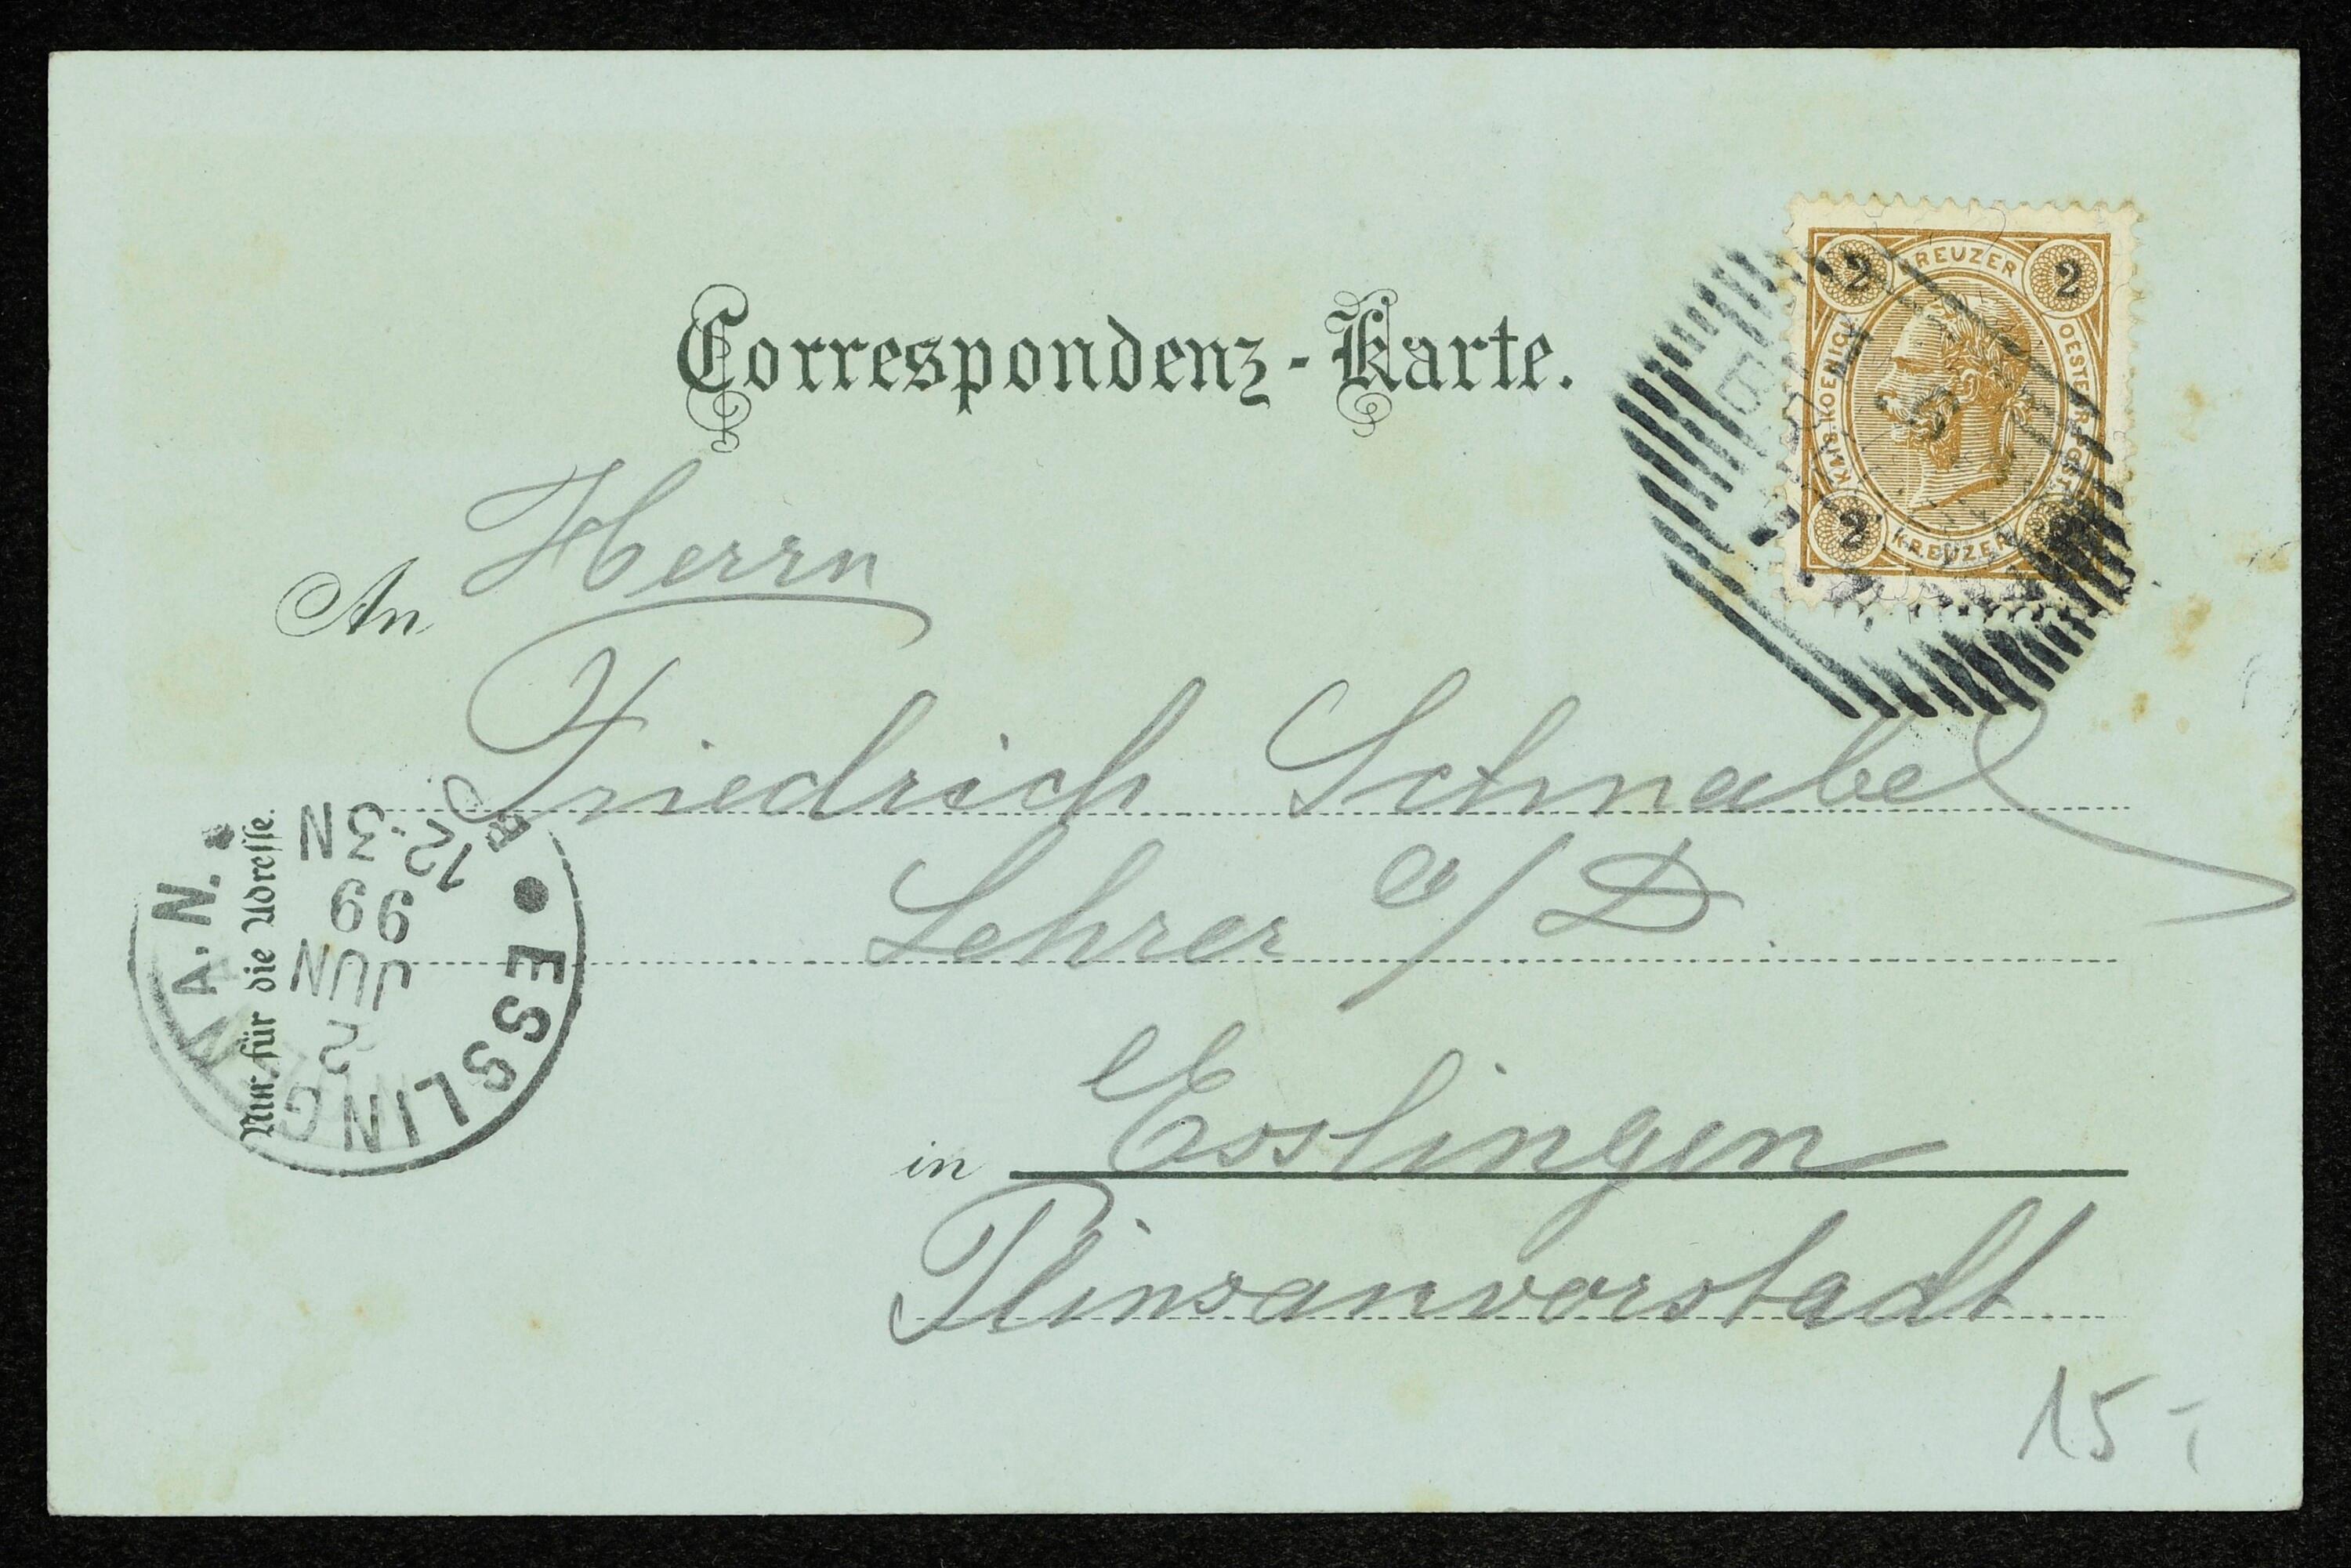 Correspondenz-Karte.
2 KREUZER 2
KAIS. KOENIGL.
OESTERR.
2 KREUZER
An Herrn
Friedrich Schnabel
Lehrer a/D.
in Esslingen
Plinsauvorstadt
15 -
Nur für die Adresse.
ESSLINGEN A.N.
2 JUN 99
12. 3 N